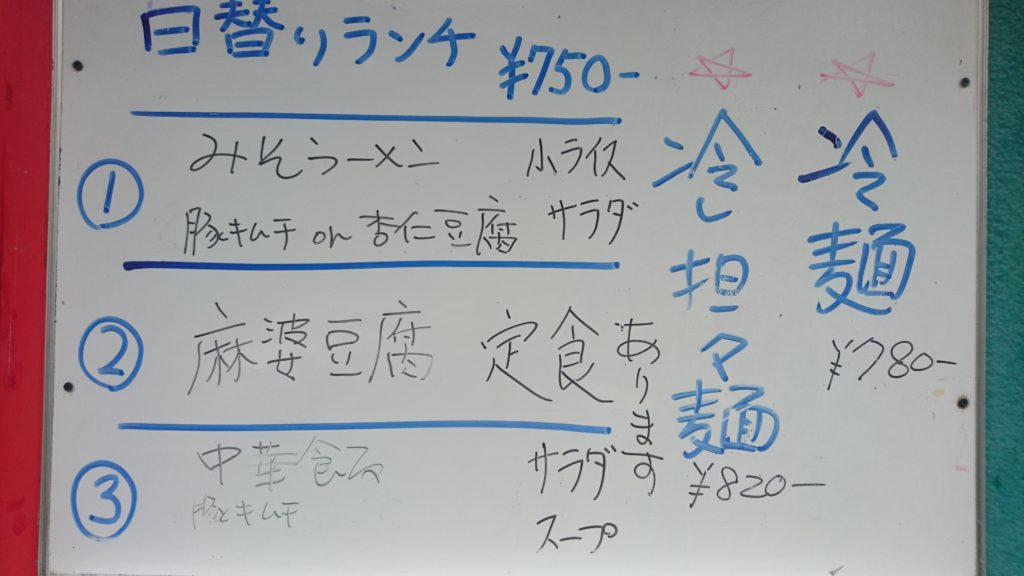 日替りランチ ¥750-
① みそらーメン 小ライス
豚キムチ or 杏仁豆腐 サラダ
② 麻婆豆腐 定食
③ 中華飯 サラダ
豚キムチ スープ
あります
☆
冷し担々麺
¥820-
☆
冷麺
¥780-